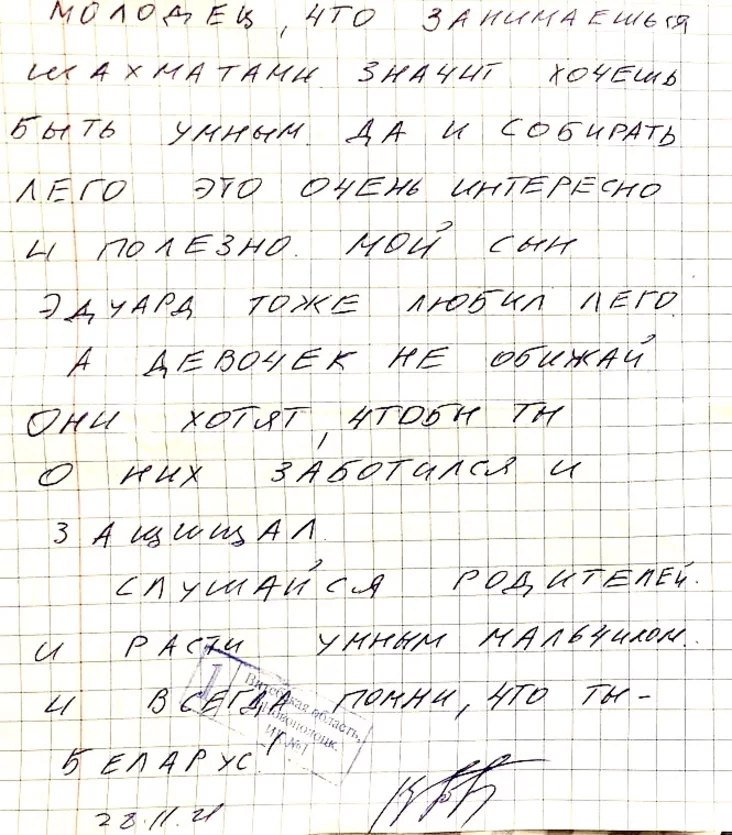 МОЛОДЕЦ, ЧТО ЗАНИМАЕШЬСЯ
ШАХМАТАМИ ЗНАЧИТ ХОЧЕШЬ
БЫТЬ УМНЫМ. ДА И СОБИРАТЬ
ЛЕГО ЭТО ОЧЕНЬ ИНТЕРЕСНО
И ПОЛЕЗНО. МОЙ СЫН
ЭДУАРД ТОЖЕ ЛЮБИЛ ЛЕГО.
А ДЕВОЧЕК НЕ ОБИЖАЙ
ОНИ ХОТЯТ, ЧТОБЫ ТЫ
О НИХ ЗАБОТИЛСЯ И
ЗАЩИЩАЛ.
СЛУШАЙСЯ РОДИТЕЛЕЙ.
И РАСТИ УМНЫМ МАЛЬЧИКОМ.
И ВСЕГДА ПОМНИ, ЧТО ТЫ -
БЕЛАРУС!
1 Витебская область,
г. Новополоцк,
ИК №1
28.11.21